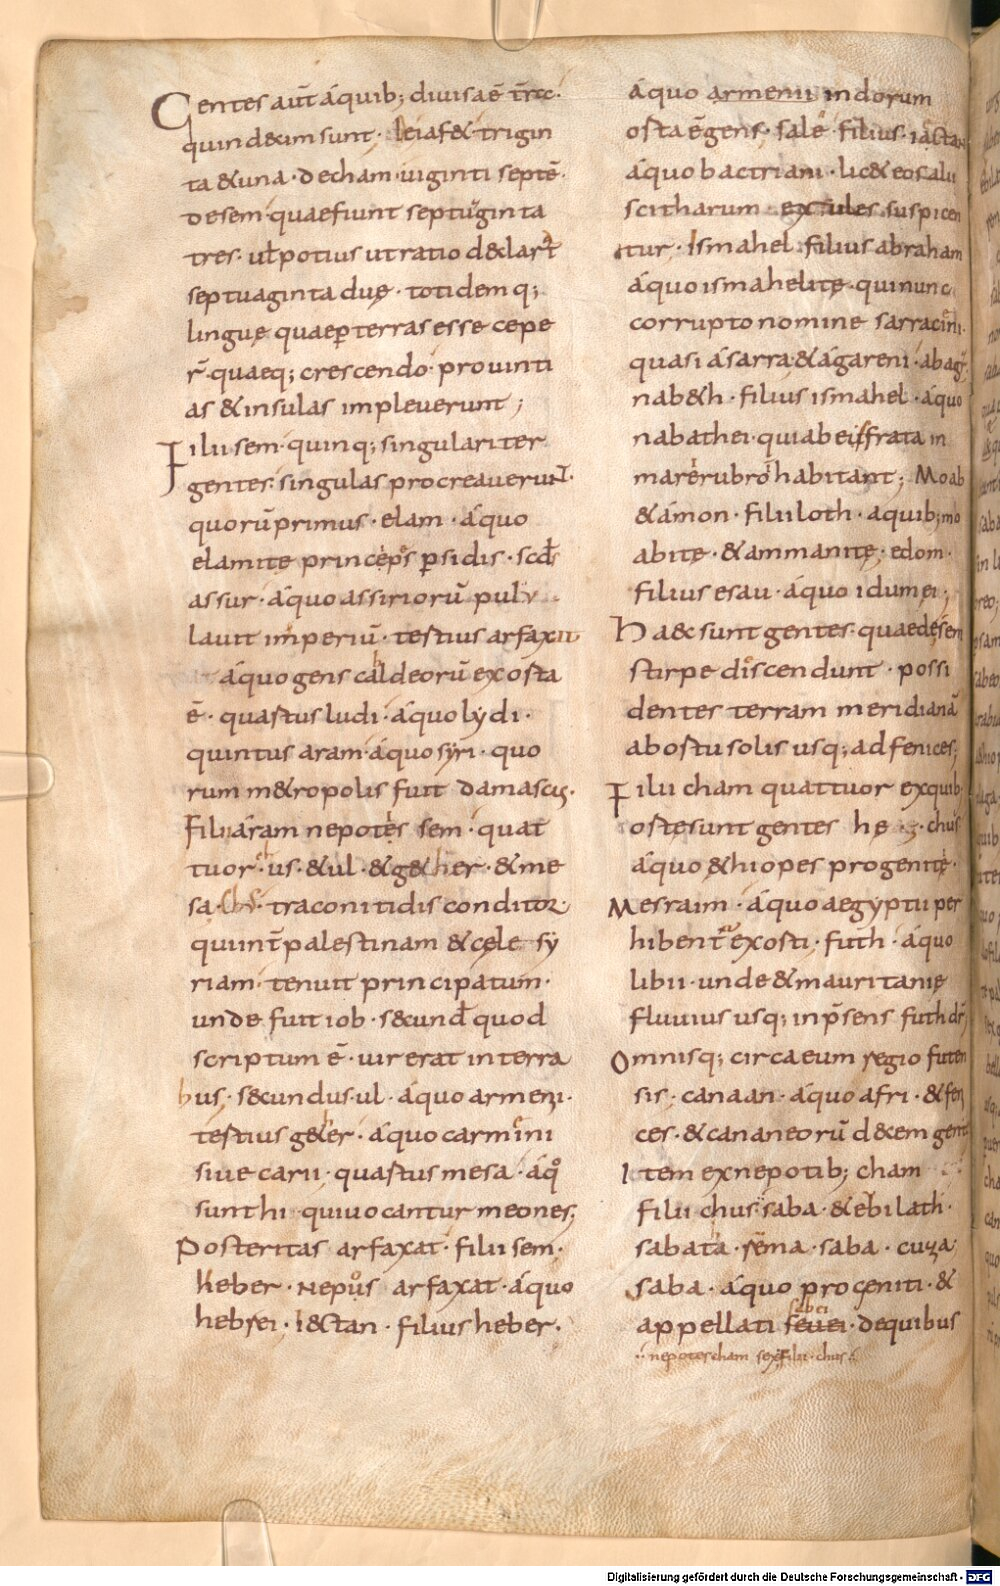 Gentes aut̄ áquib; diuisae t̄rae·
quindecim sunt· deiafet· trigin
ta &una· decham· uiginti septē·
desem· quaefiunt septuginta
tres· uł potius utratio declarat̄
septuaginta duę· totidemq;
linguę quaeper terras esse cepe
r̄· quaeq; crescendo· prouinti
as &insulas impleuerunt;
Filii sem· quinq; singulariter
gentes· singulas procreauerunt·
quorū primus· elam· áquo
elamite princeps persidis· scds
assur· áquo assiriorū pul
lauit imperiū· testius arfaxat
áquo gens caldeorū exosta
ē· quastus ludi· áquo lydi·
quintus aram· áquo syri· quo
rum m&ropolis fuit damascus·
Filii áram nepotes sem· quat
tuor· us· &ul· &g&her· &me
sa· traconitidis conditor·
quint̄ palestinam &cęle sy
riam· tenuit principatum·
unde fuit iob· secund̄ quod
scriptum ē· uir erat in terra
bus· s&cundus· ul· áquo armeni·
testius g&er· áquo carmini
siue carii· quastus mesa· áqo
sunt hi· quiuocantur meones;
Posteritas arfaxat· filii sem·
heber· nepus arfaxat· áquo
hebrei· i&ctan· filius heber·
áquo armenii indorum
osta ē gens· sale filius· iactan
áquo bactriani· lic& eos alii
scitharum exsules suspicen
tur· Ismahel filius abraham
áquo ismahelitę· quinunc
corrupto nomine sarracini·
quasi ásarra &ágareni· abagar
nab&h· filius ismahel· áquo
nabathei· quiabeuffrata in
mare rubro habitant; Moab
&ámon· filii loth· aquib; mo
abitę· &ammanitę· edom·
filius esau· áquo idumei;
Haec sunt gentes· quaedesem
stirpe discendunt· possi
dentes terram meridianā
abostu solis usq; ad fenices;
Filii cham quattuor exquib;
ostę sunt gentes hę· chus
áquo &hiopes progenitę·
Mesraim· áquo aegyptii per
hibent̄ exosti· futh· áquo
libii· unde &mauritanię
fluuius usq; in p̄sens futh dr̄
Omnisq; circa eum regio futen
sis· canaan· áquo afri· &feni
ces· &cananeorū decem gentes
Item ex nepotib; cham
filii chus· saba· &ebilath·
sabata· rema· saba· cuza·
saba· áquo progeniti· &
sabei
appellati seuei· dequibus
nepotes cham sex filii· chus·